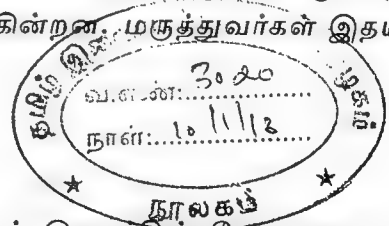 கின்றன. மருத்துவர்கள் இதய
தமிழ் இ
வ.எண்: 3020
நாள்: 10/1/13
நூலகம்